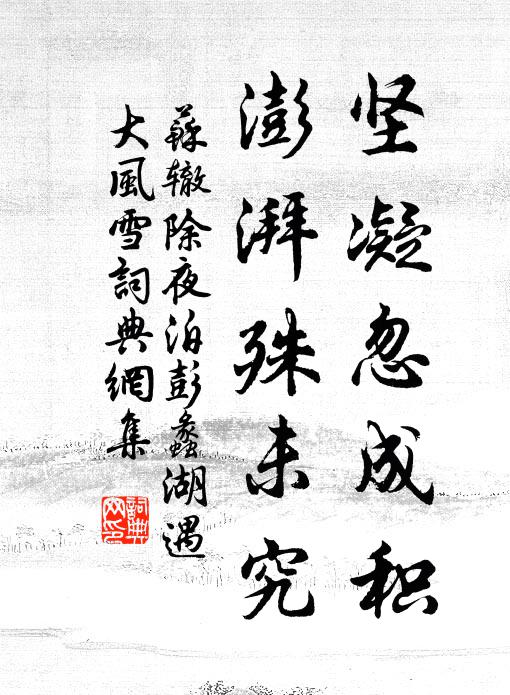 坚凝忽成积
澎湃殊未究
蘇辙除夜泊彭蠡湖遇
大風雪詞典網集
詞典
网印